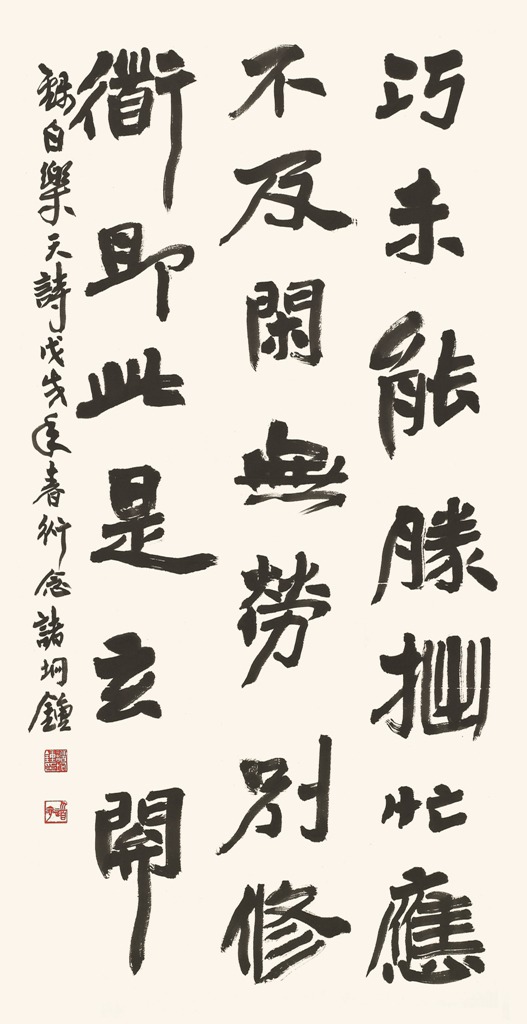 巧未能勝拙忙應
不及閑無勞別修
衜即此是玄閞
錄白樂天詩戊戌年春